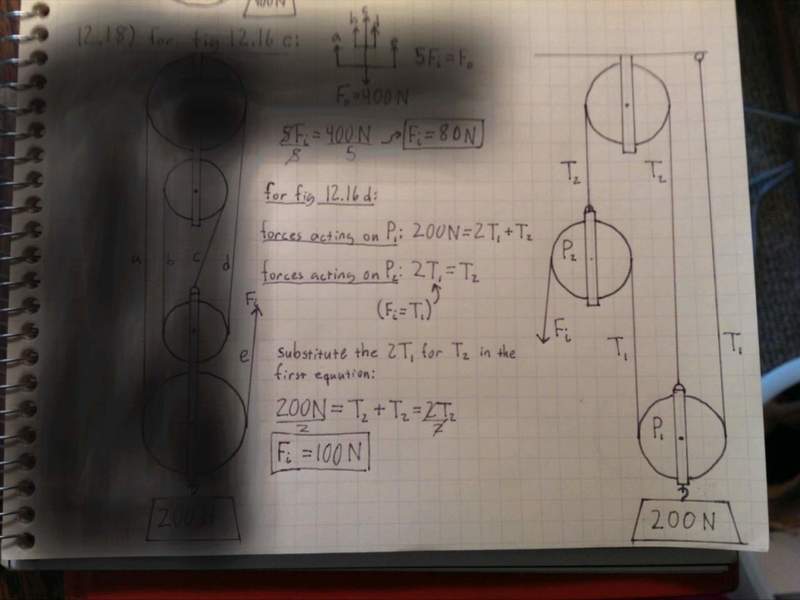 400N
12.18) for fig 12.16 c:
a b c d e
5Fᵢ = F₀
F₀=400N
5Fᵢ/5 = 400N/5 → Fᵢ = 80N
for fig 12.16 d:
forces acting on P₁: 200N = 2T₁ + T₂
forces acting on P₂: 2T₁ = T₂
(Fᵢ = T₁)
substitute the 2T₁ for T₂ in the
first equation:
200N/2 = T₂ + T₂ = 2T₂/2
Fᵢ = 100N
a b c d
Fᵢ
e
200N
T₂ T₂
P₂
Fᵢ
T₁ T₁
P₁
200N